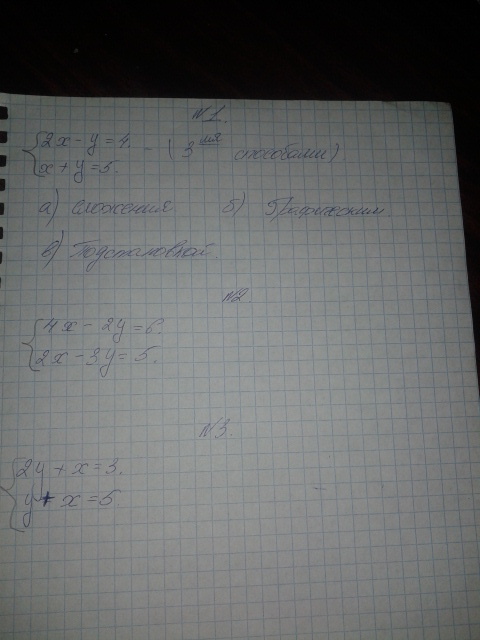 №1.
{2x - y = 4. - ( 3мя способами)
x + y = 5.
а) сложения б) Графическим
в) Подстановкой.
№2
{4x - 2y = 6.
2x - 3y = 5.
№3.
{2y + x = 3.
y + x = 5